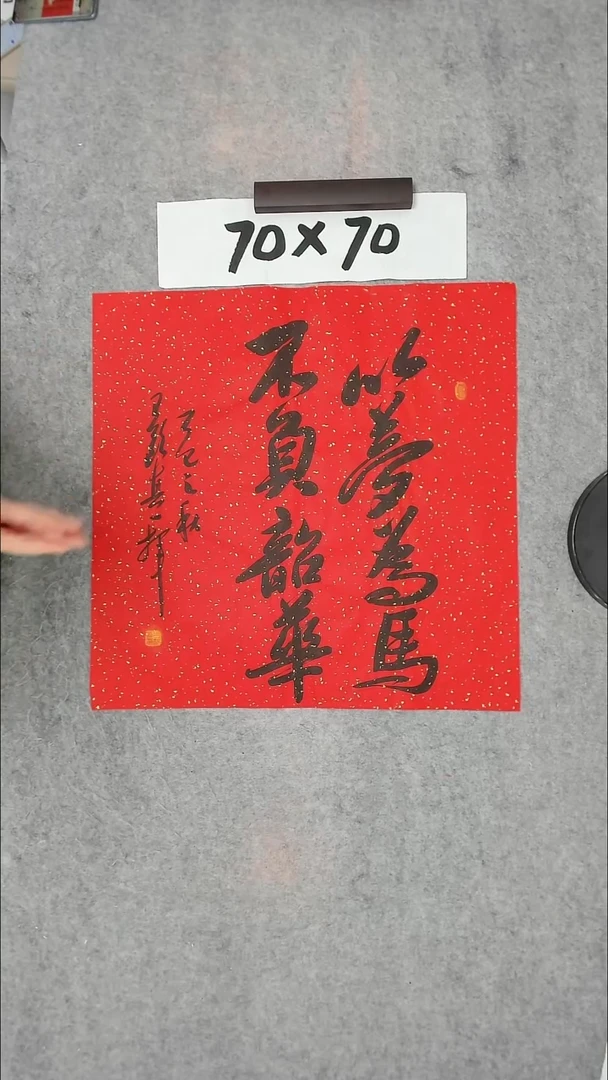 70×70
以夢為馬
不負韶華
乙巳之秋